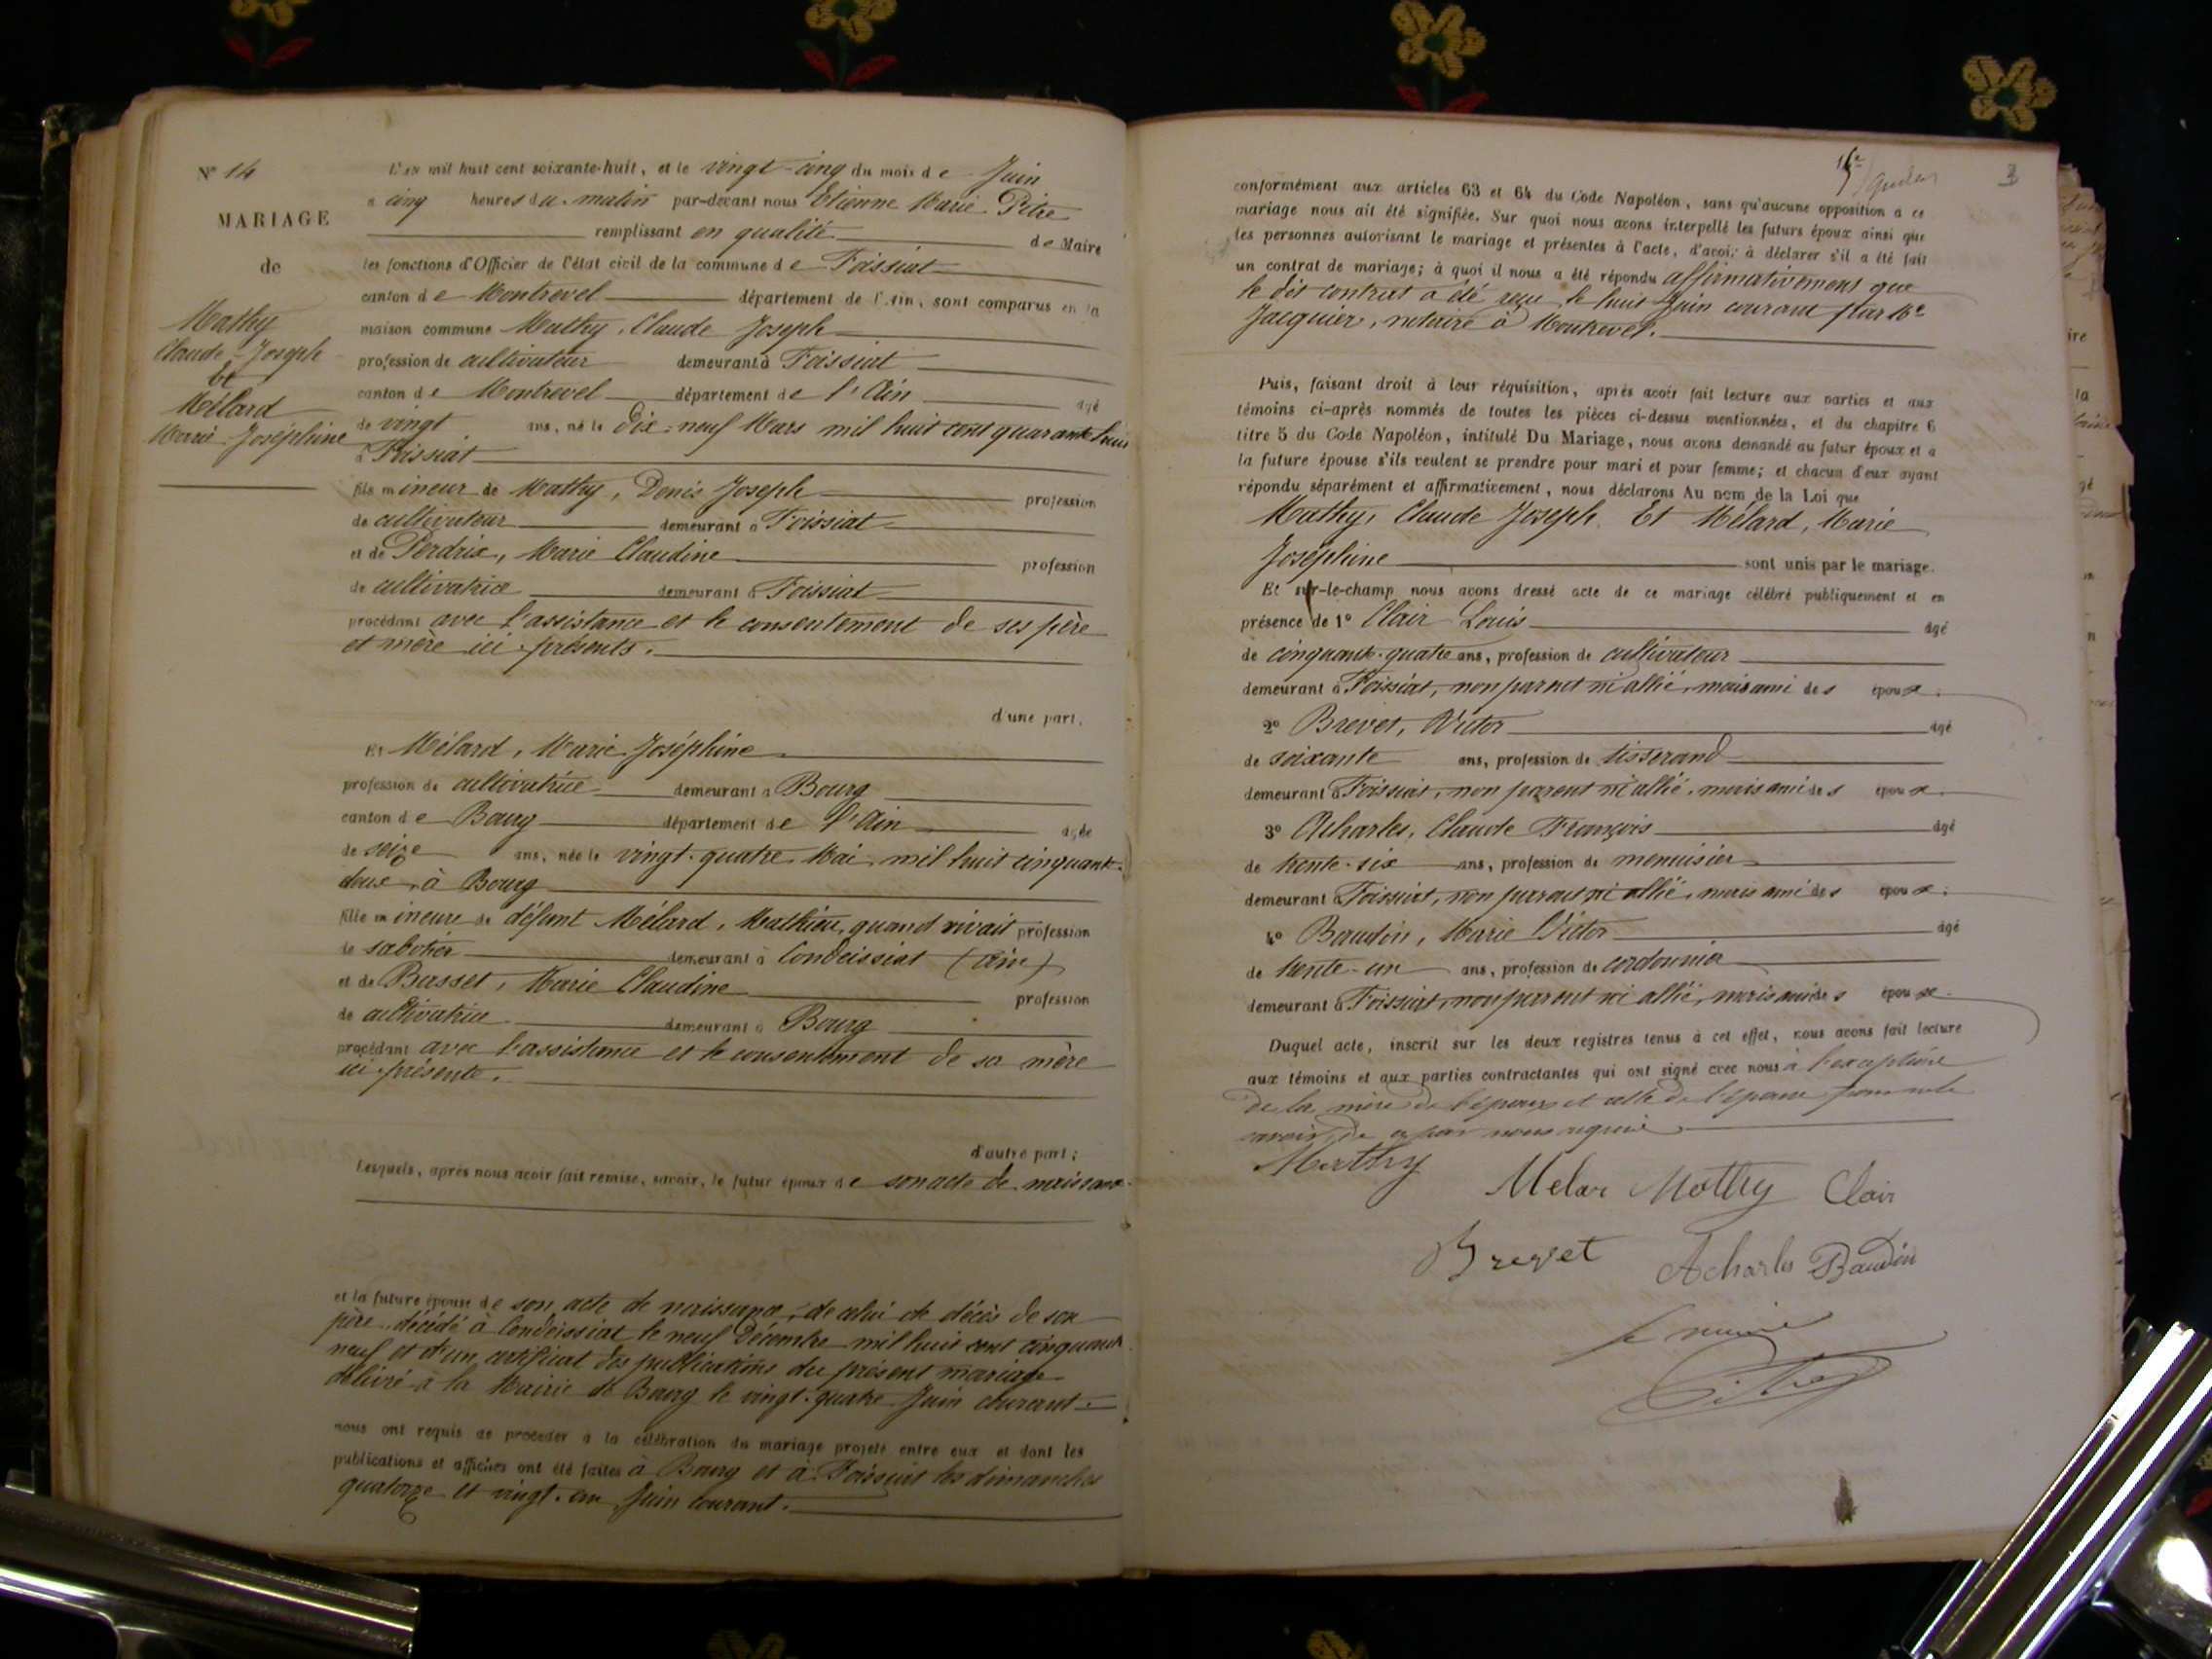 Nº 14
MARIAGE
de
Mathy
Claude-Joseph
et
Mélard
Marie-Joséphine
L'AN mil huit cent soixante-huit, et le vingt-cinq du mois de Juin
à cinq heures du matin par-devant nous Etienne Marie Pitre
remplissant en qualité de Maire
les fonctions d'Officier de l'état civil de la commune de Foissiat
canton de Montrevel département de l'Ain, sont comparus en la
maison commune Mathy, Claude Joseph
profession de cultivateur demeurant à Foissiat
canton de Montrevel département de l'Ain âgé
de vingt ans, né le Dix-neuf Mars mil huit cent quarante huit
à Foissiat
fils mineur de Mathy, Denis Joseph profession
de cultivateur demeurant à Foissiat
et de Perdrix, Marie Claudine profession
de cultivatrice demeurant à Foissiat
procédant avec l'assistance et le consentement de ses père
et mère ici présents.
d'une part.
Et Mélard, Marie Joséphine
profession de cultivatrice demeurant à Bourg
canton de Bourg département de l'Ain âgée
de seize ans, née le vingt-quatre Mai mil huit cinquante-
deux, à Bourg
fille mineure de défunt Mélard, Mathieu, quand vivait profession
de sabotier demeurant à Condeissiat (Ain)
et de Basset, Marie Claudine profession
de cultivatrice demeurant à Bourg
procédant avec l'assistance et le consentement de sa mère
ici présente.
d'autre part;
Lesquels, après nous avoir fait remise, savoir, le futur époux de son acte de naissance
et la future épouse de son acte de naissance, de celui de décès de son
père décédé à Condeissiat le neuf Décembre mil huit cent cinquante
neuf et d'un certificat des publications du présent mariage
délivré à la Mairie de Bourg le vingt-quatre Juin courant.
nous ont requis de procéder à la célébration du mariage projeté entre eux et dont les
publications et affiches ont été faites à Bourg et à Foissiat les dimanches
quatorze et vingt-un Juin courant.
3
conformément aux articles 63 et 64 du Code Napoléon, sans qu'aucune opposition à ce
mariage nous ait été signifiée. Sur quoi nous avons interpellé les futurs époux ainsi que
les personnes autorisant le mariage et présentes à l'acte, d'avoir à déclarer s'il a été fait
un contrat de mariage; à quoi il nous a été répondu affirmativement que
le dit contrat a été reçu le huit Juin courant par Me
Jacquier, notaire à Montrevel.
Puis, faisant droit à leur réquisition, après avoir fait lecture aux parties et aux
témoins ci-après nommés de toutes les pièces ci-dessus mentionnées, et du chapitre 6
titre 5 du Code Napoléon, intitulé Du Mariage, nous avons demandé au futur époux et à
la future épouse s'ils veulent se prendre pour mari et pour femme; et chacun d'eux ayant
répondu séparément et affirmativement, nous déclarons Au nom de la Loi que
Mathy, Claude Joseph. Et Mélard, Marie
Joséphine sont unis par le mariage.
Et sur-le-champ nous avons dressé acte de ce mariage célébré publiquement et en
présence de 1º Clair Louis âgé
de cinquante-quatre ans, profession de cultivateur
demeurant à Foissiat, non parent ni allié, mais ami des époux.
2º Brevet, Victor âgé
de soixante ans, profession de tisserand
demeurant à Foissiat, non parent ni allié, mais ami des époux.
3º Acharles, Claude François âgé
de trente-six ans, profession de menuisier
demeurant à Foissiat, non parent ni allié, mais ami des époux.
4º Baudin, Marie Victor âgé
de trente-un ans, profession de cordonnier
demeurant à Foissiat, non parent ni allié, mais ami des époux.
Duquel acte, inscrit sur les deux registres tenus à cet effet, nous avons fait lecture
aux témoins et aux parties contractantes qui ont signé avec nous à l'exception
de la mère de l'époux et celle de l'épouse pour ne le
savoir, de ce par nous requis.
Mathy
Melar Mathy Clair
Brevet Acharles Baudin
Le maire
Pitre